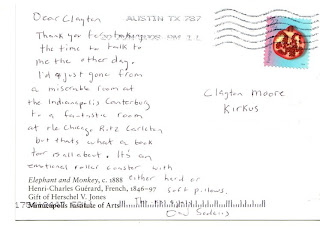 Dear Clayton
AUSTIN TX 787
Thank you for taking
the time to talk to
me the other day.
I'd just gone from
a miserable room at
the Indianapolis Canterbury
to a fantastic room
at the Chicago Ritz Carleton
but thats what a book
tour is all about. It's an
emotional roller coaster with
either hard or
soft pillows.
Clayton Moore
Kirkus
Elephant and Monkey, c. 1888
Henri-Charles Guérard, French, 1846-97
Gift of Herschel V. Jones
Minneapolis Institute of Arts
David Sedaris